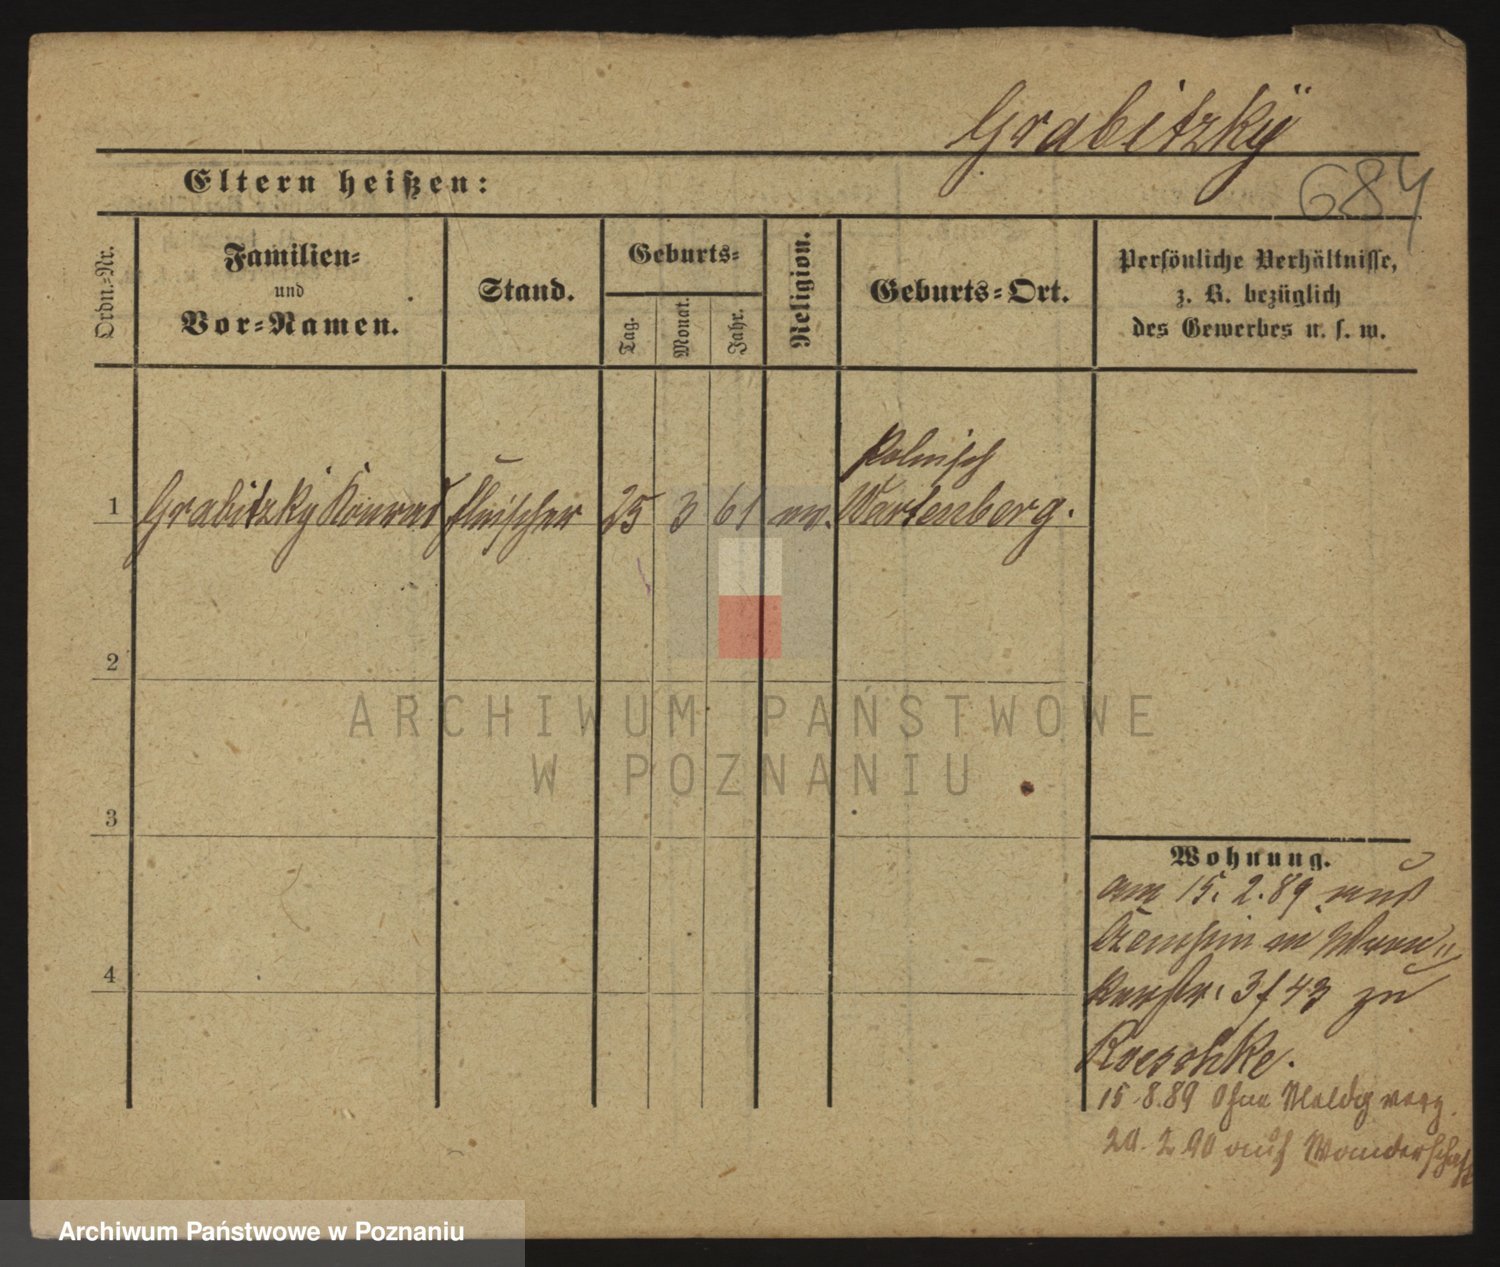 Grabitzkÿ
684
Eltern heißen:
Ordn.-Nr.
Familien-
und
Vor-Namen.
Stand.
Geburts-
Tag.
Monat.
Jahr.
Religion.
Geburts-Ort.
Persönliche Verhältnisse,
z. B. bezüglich
des Gewerbes u. s. w.
1 Grabitzkÿ Konrad Fleischer 25 3 61 ev. Polnisch
Wartenberg.
2
3
4
Wohnung.
am 15. 2. 89 aus
in
3 f 43 zu
Roeschke.
15.8.89 Ohne Meldg verz.
20. 2. 90 auf Wanderschaft
ARCHIWUM PAŃSTWOWE
W POZNANIU
Archiwum Państwowe w Poznaniu